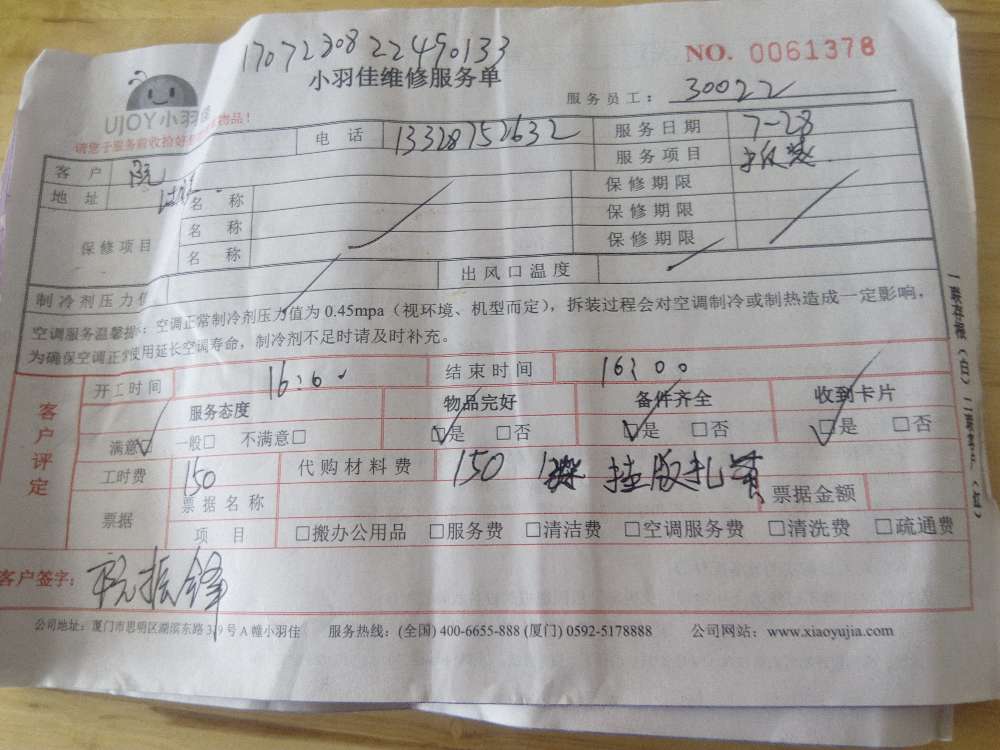 1707230822490133
NO. 0061378
小羽佳维修服务单
UJOY小羽佳
服务员工： 30022
请您于服务前收拾好 物品！
客 户 阮 电 话 13328752632 服务日期 7-28
服务项目 拆装
地 址
保修项目 名 称 保修期限
名 称 保修期限
名 称 保修期限
制冷剂压力值 出风口温度
空调服务温馨提示：空调正常制冷剂压力值为 0.45mpa（视环境、机型而定），拆装过程会对空调制冷或制热造成一定影响，
为确保空调正常使用延长空调寿命，制冷剂不足时请及时补充。
客户评定
开工时间 结束时间 16:00
服务态度 物品完好 备件齐全 收到卡片
满意☑ 一般□ 不满意□ ☑是 □否 ☑是 □否 ☑是 □否
工时费 150 代购材料费 150 挂版扎箕
票据 票据名称 票据金额
项 目 □搬办公用品 □服务费 □清洁费 □空调服务费 □清洗费 □疏通费
客户签字： 阮振锋
公司地址：厦门市思明区湖滨东路 319 号 A 幢小羽佳 服务热线：(全国) 400-6655-888 (厦门) 0592-5178888 公司网站：www.xiaoyujia.com
一联存根（白）二联客户（红）